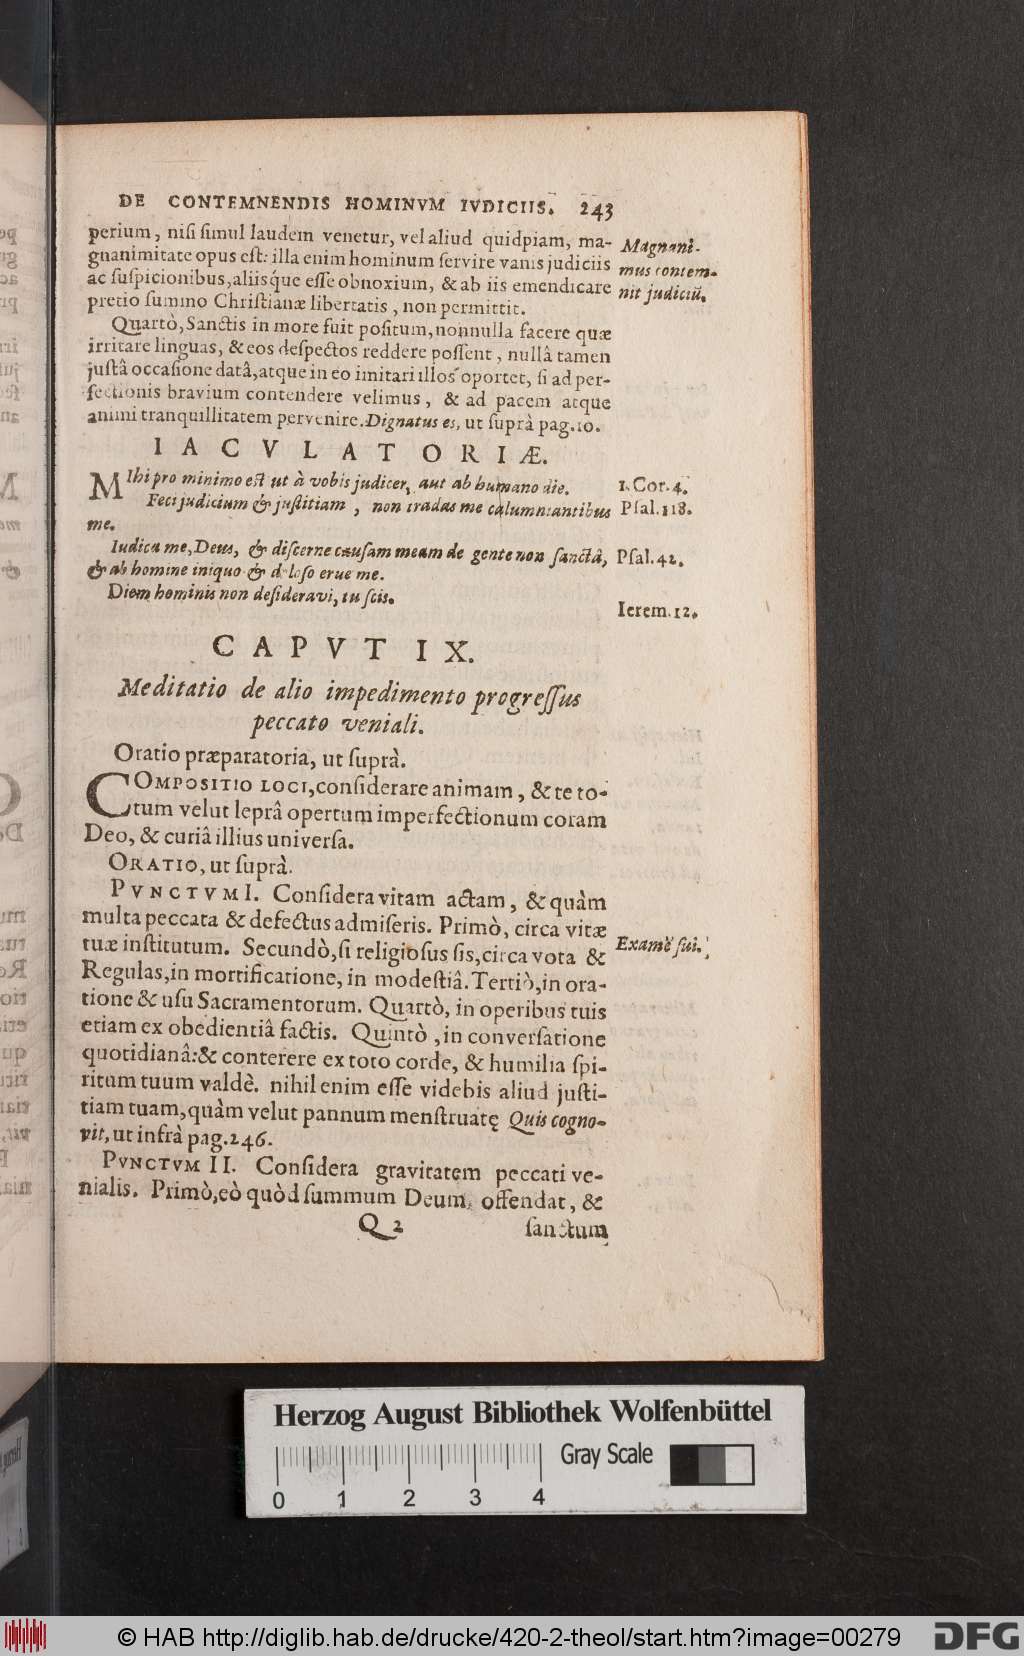 DE CONTEMNENDIS HOMINVM IVDICIIS. 243
perium, niſi ſimul laudem venetur, vel aliud quidpiam, ma-
gnanimitate opus eſt: illa enim hominum ſervire vanis judiciis
ac ſuſpicionibus, aliisq́ue eſſe obnoxium, & ab iis emendicare
pretio ſummo Chriſtianæ libertatis, non permittit.
Magnani-
mus contem-
nit judiciū.
Quartò, Sanctis in more fuit poſitum, nonnulla facere quæ
irritare linguas, & eos deſpectos reddere poſſent, nullâ tamen
juſtâ occaſione datâ, atque in eo imitari illos oportet, ſi ad per-
fectionis bravium contendere velimus, & ad pacem atque
animi tranquillitatem pervenire. Dignatus es, ut ſuprà pag. 10.
IACVLATORIÆ.
MIhi pro minimo eſt ut à vobis judicer, aut ab humano die.
1. Cor. 4.
Feci judicium & juſtitiam, non tradas me calumniantibus
Pſal. 118.
me.
Iudica me, Deus, & diſcerne cauſam meam de gente non ſanctâ,
Pſal. 42.
& ab homine iniquo & doloſo erue me.
Diem hominis non deſideravi, tu ſcis.
Ierem. 12.
CAPVT IX.
Meditatio de alio impedimento progreſſus
peccato veniali.
Oratio præparatoria, ut ſuprà.
COMPOSITIO LOCI, conſiderare animam, & te to-
tum velut leprâ opertum imperfectionum coram
Deo, & curiâ illius univerſa.
ORATIO, ut ſuprà.
PVNCTVM I. Conſidera vitam actam, & quàm
multa peccata & defectus admiſeris. Primò, circa vitæ
tuæ inſtitutum. Secundò, ſi religioſus ſis, circa vota &
Examē ſui.
Regulas, in mortificatione, in modeſtiâ. Tertiò, in ora-
tione & uſu Sacramentorum. Quartò, in operibus tuis
etiam ex obedientiâ factis. Quintò, in converſatione
quotidianâ: & conterere ex toto corde, & humilia ſpi-
ritum tuum valdè. nihil enim eſſe videbis aliud juſti-
tiam tuam, quàm velut pannum menſtruatę Quis cogno-
vit, ut infrà pag. 246.
PVNCTVM II. Conſidera gravitatem peccati ve-
nialis. Primò, eò quòd ſummum Deum offendat, &
Q 2 ſanctum
Herzog August Bibliothek Wolfenbüttel
Gray Scale
0 1 2 3 4
© HAB http://diglib.hab.de/drucke/420-2-theol/start.htm?image=00279
DFG